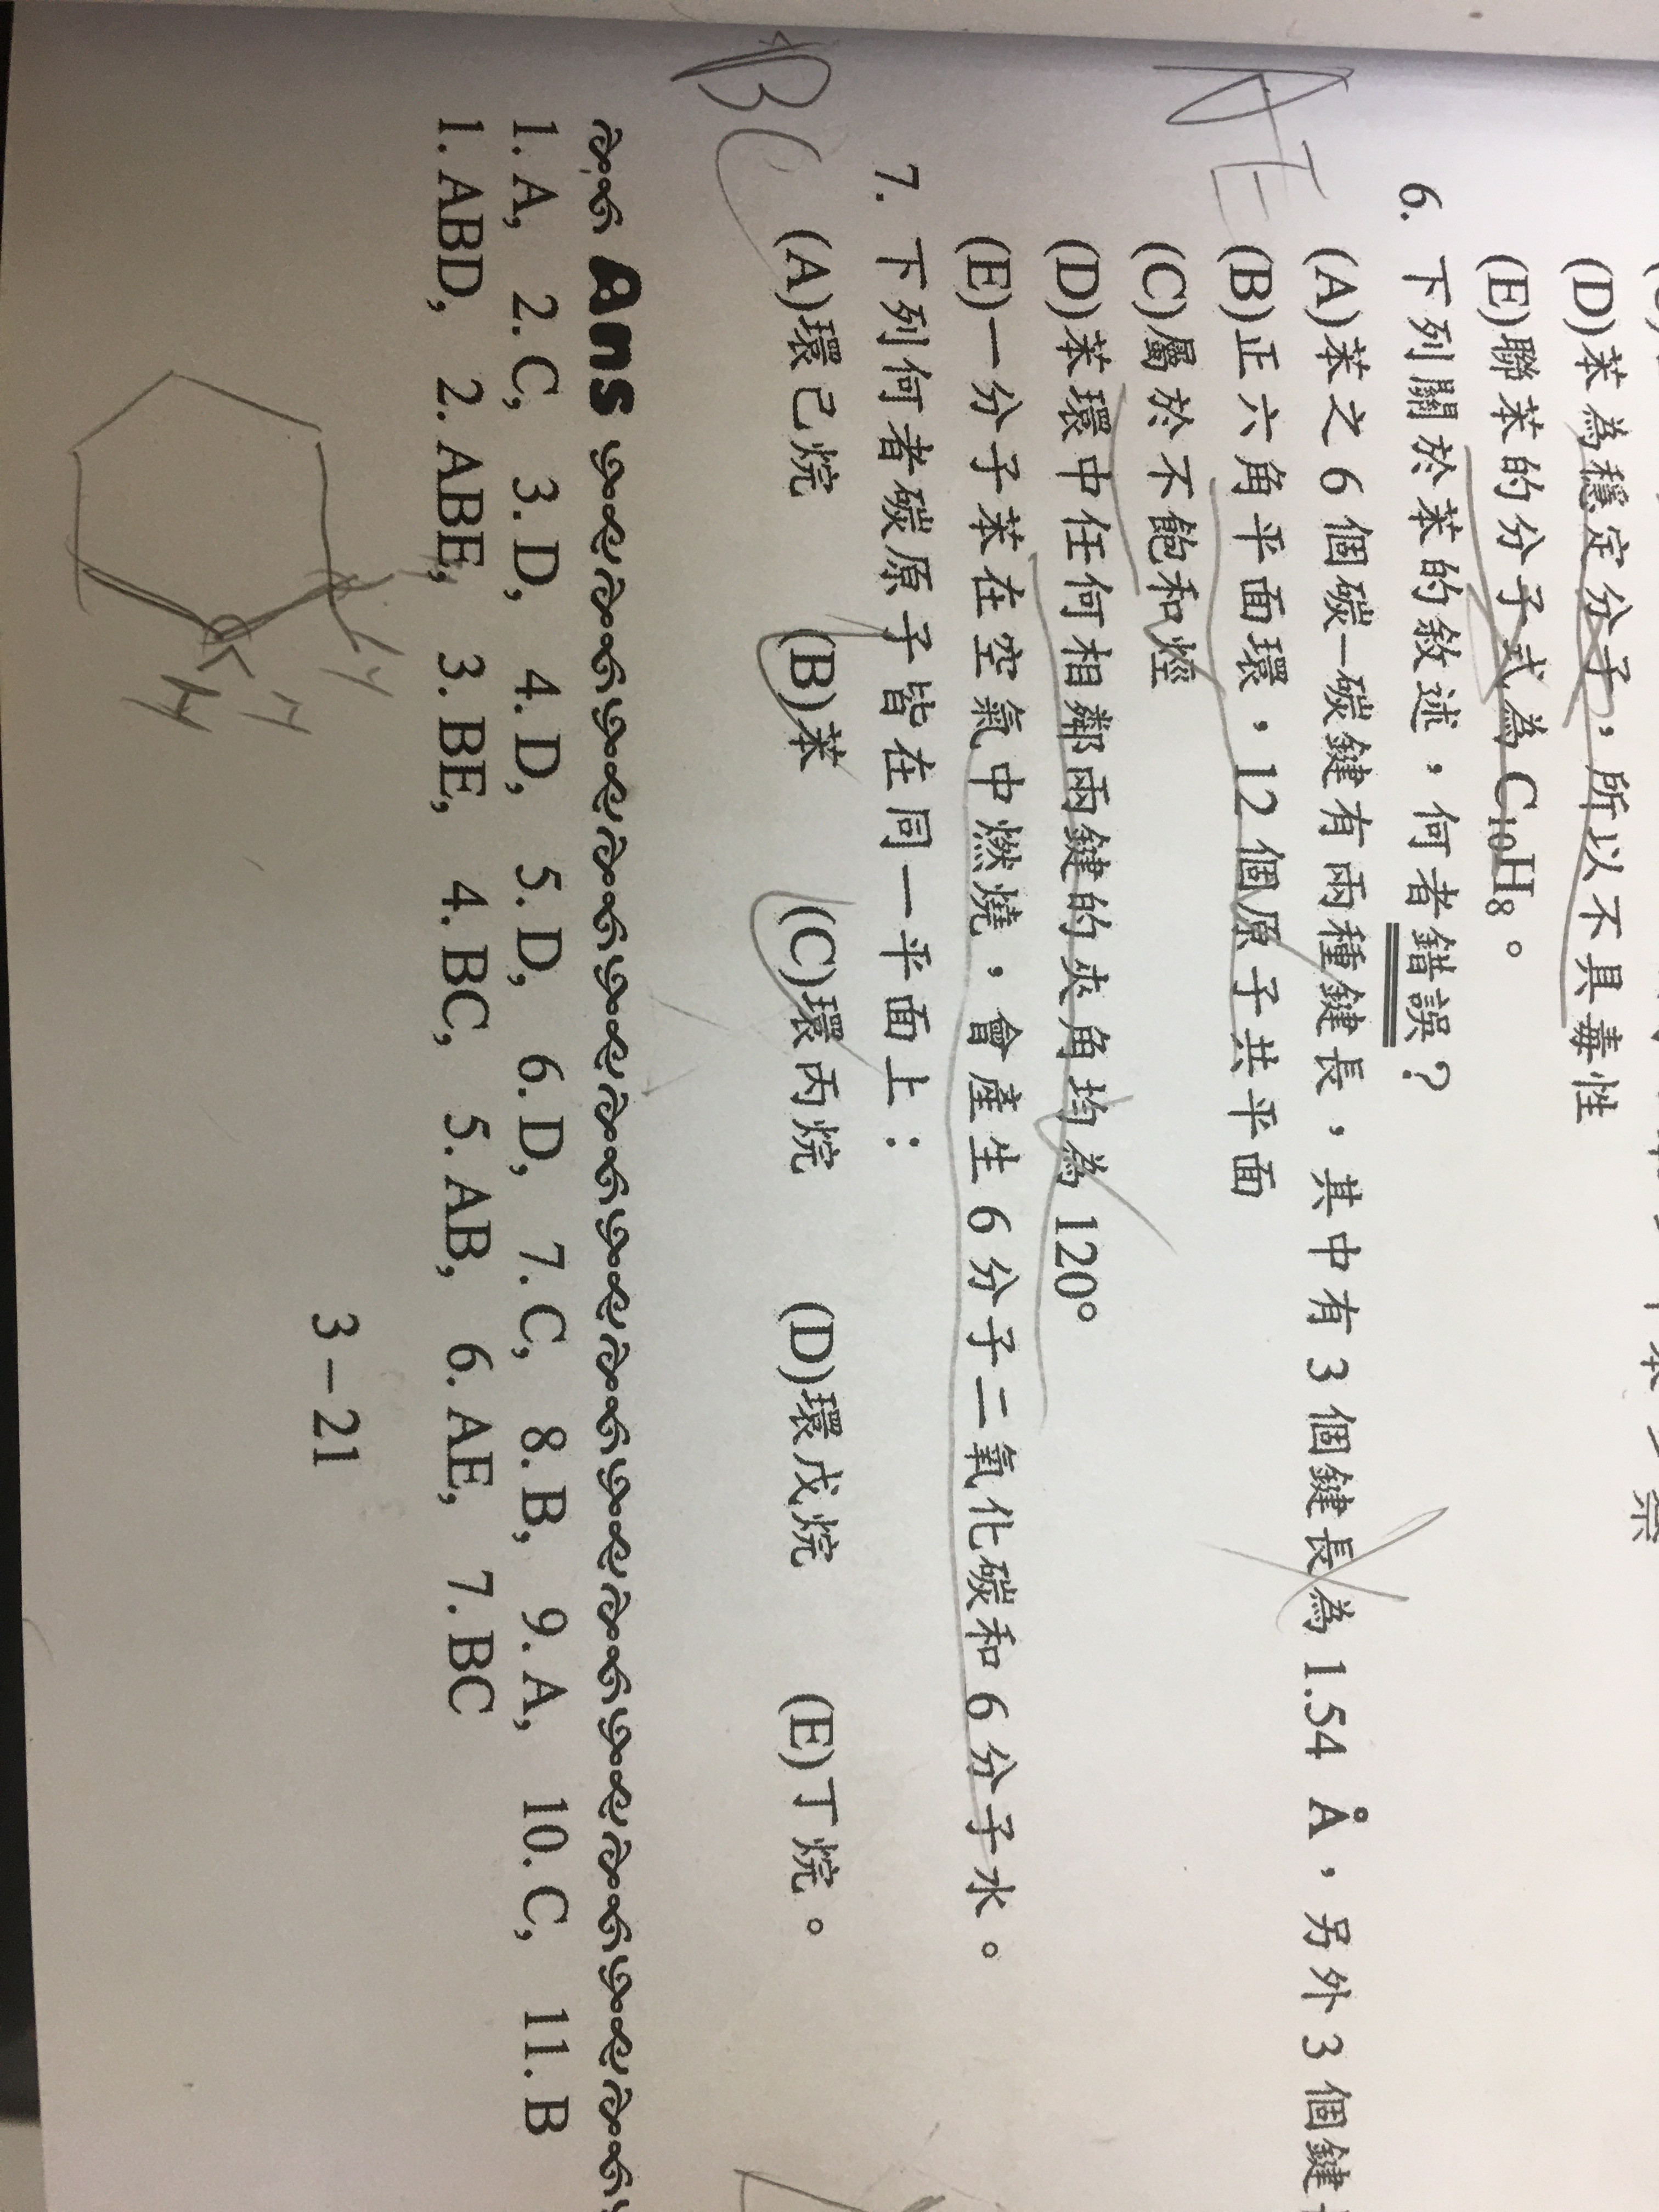 (D)苯為穩定分子，所以不具毒性
(E)聯苯的分子式為 C₁₀H₈。
AE
6. 下列關於苯的敘述，何者錯誤？
(A)苯之 6 個碳－碳鍵有兩種鍵長，其中有 3 個鍵長為 1.54 Å，另外 3 個鍵
(B)正六角平面環，12 個原子共平面
(C)屬於不飽和烴
(D)苯環中任何相鄰兩鍵的夾角均為 120°
(E)一分子苯在空氣中燃燒，會產生 6 分子二氧化碳和 6 分子水。
BC
7. 下列何者碳原子皆在同一平面上：
(A)環己烷 (B)苯 (C)環丙烷 (D)環戊烷 (E)丁烷。
Ans
1. A, 2. C, 3. D, 4. D, 5. D, 6. D, 7. C, 8. B, 9. A, 10. C, 11. B
1. ABD, 2. ABE, 3. BE, 4. BC, 5. AB, 6. AE, 7. BC
3－21
H
H
H